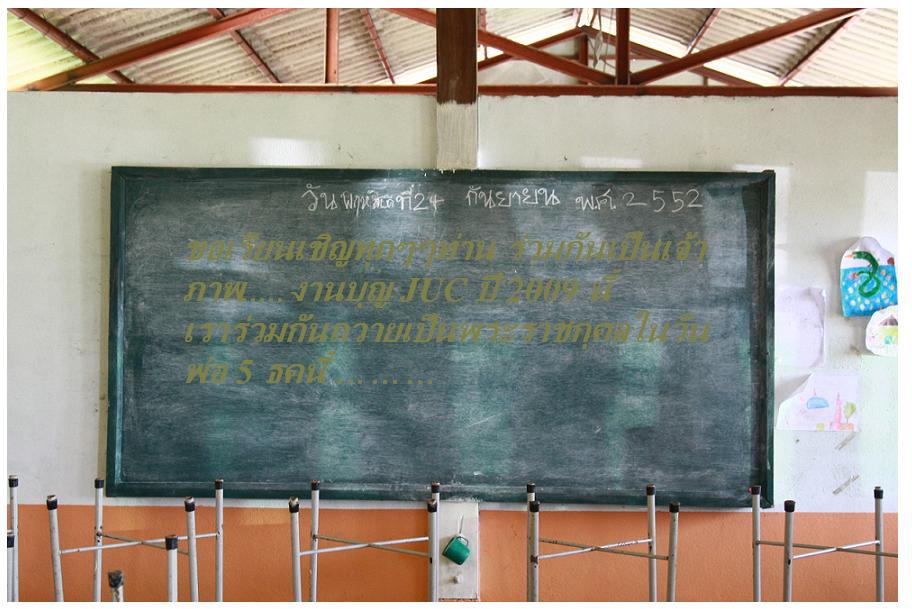 วันพฤหัสบดีที่24 กันยายน พ.ศ. 2552
ขอเรียนเชิญทุกๆๆท่าน ร่วมกันเป็นเจ้า
ภาพ.... งานบุญ JUC ปี 2009 นี้
เราร่วมกันถวายเป็นพระราชกุศลในวัน
พ่อ 5 ธคนี้ ... ... ...